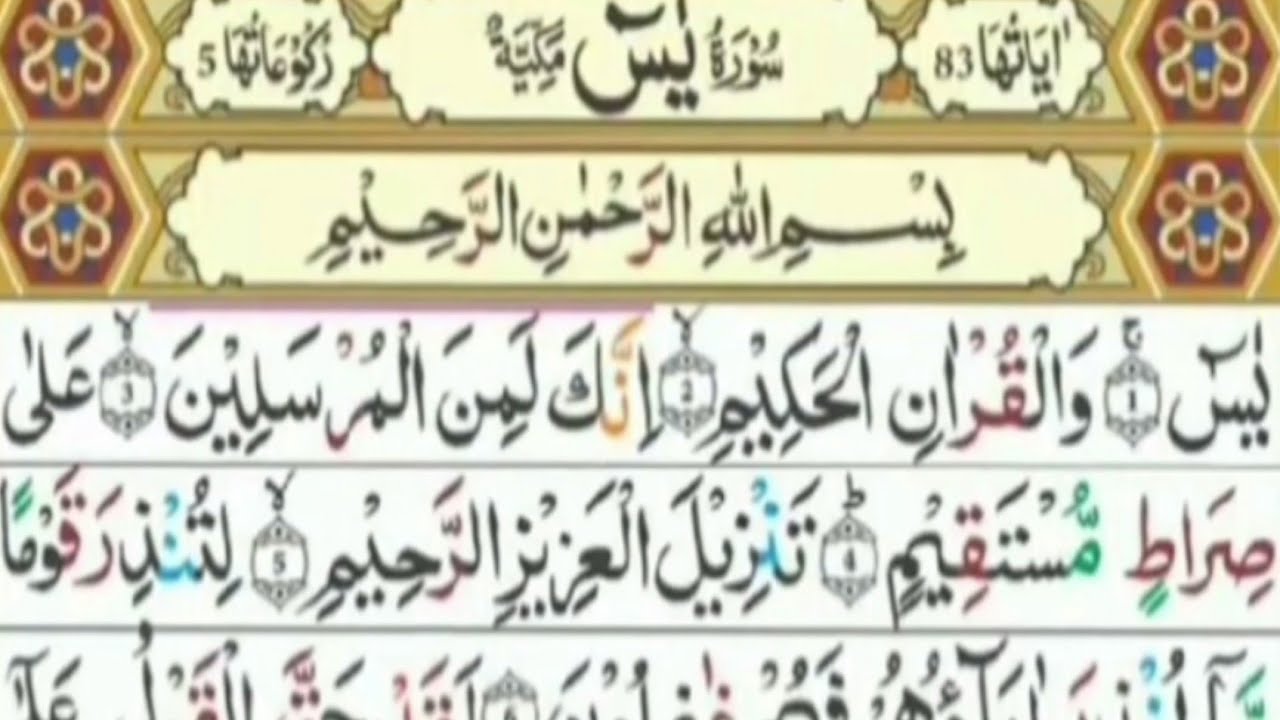 اٰيَاتُهَا 83 سُوْرَةُ يٰسٓ مَكِّيَّةٌ رُكُوْعَاتُهَا 5
بِسْمِ اللّٰهِ الرَّحْمٰنِ الرَّحِيْمِ
يٰسٓ ۚ 1 وَالْقُرْاٰنِ الْحَكِيْمِ ۙ 2 اِنَّكَ لَمِنَ الْمُرْسَلِيْنَ ۙ 3 عَلٰى
صِرَاطٍ مُّسْتَقِيْمٍ ؕ 4 تَنْزِيْلَ الْعَزِيْزِ الرَّحِيْمِ ۙ 5 لِتُنْذِرَ قَوْمًا
مَّاۤ اُنْذِرَ اٰبَآؤُهُمْ فَهُمْ غٰفِلُوْنَ 6 لَقَدْ حَقَّ الْقَوْلُ عَلٰۤى